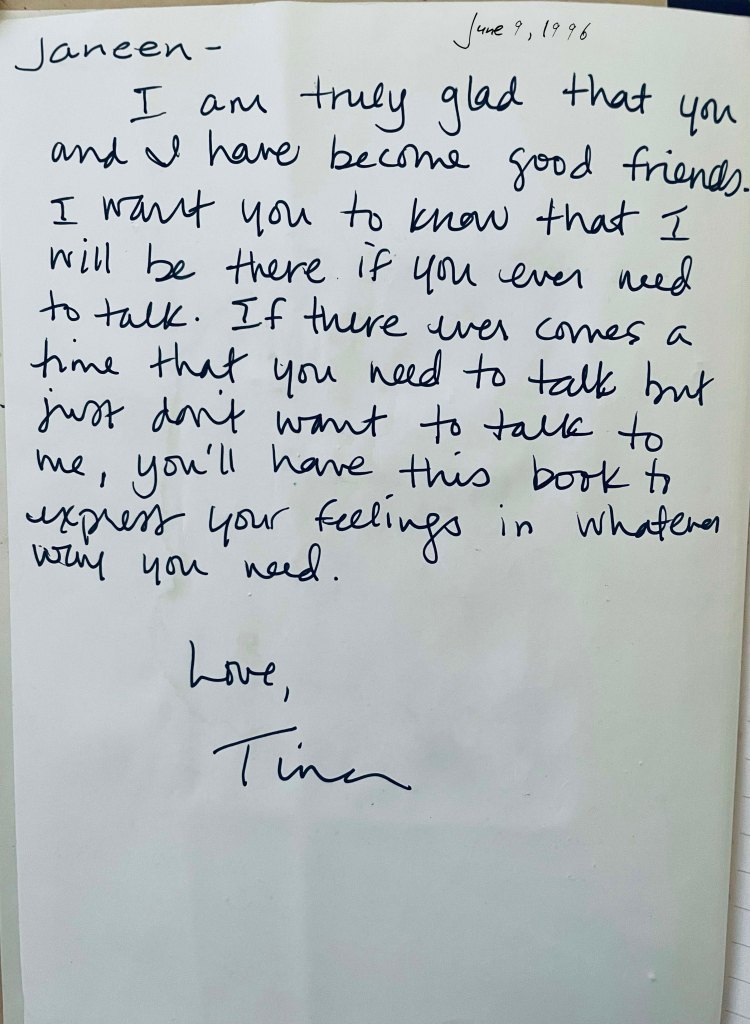 June 9, 1996
Janeen -
I am truly glad that you
and I have become good friends.
I want you to know that I
will be there if you ever need
to talk. If there ever comes a
time that you need to talk but
just don't want to talk to
me, you'll have this book to
express your feelings in whatever
way you need.
Love,
Tina